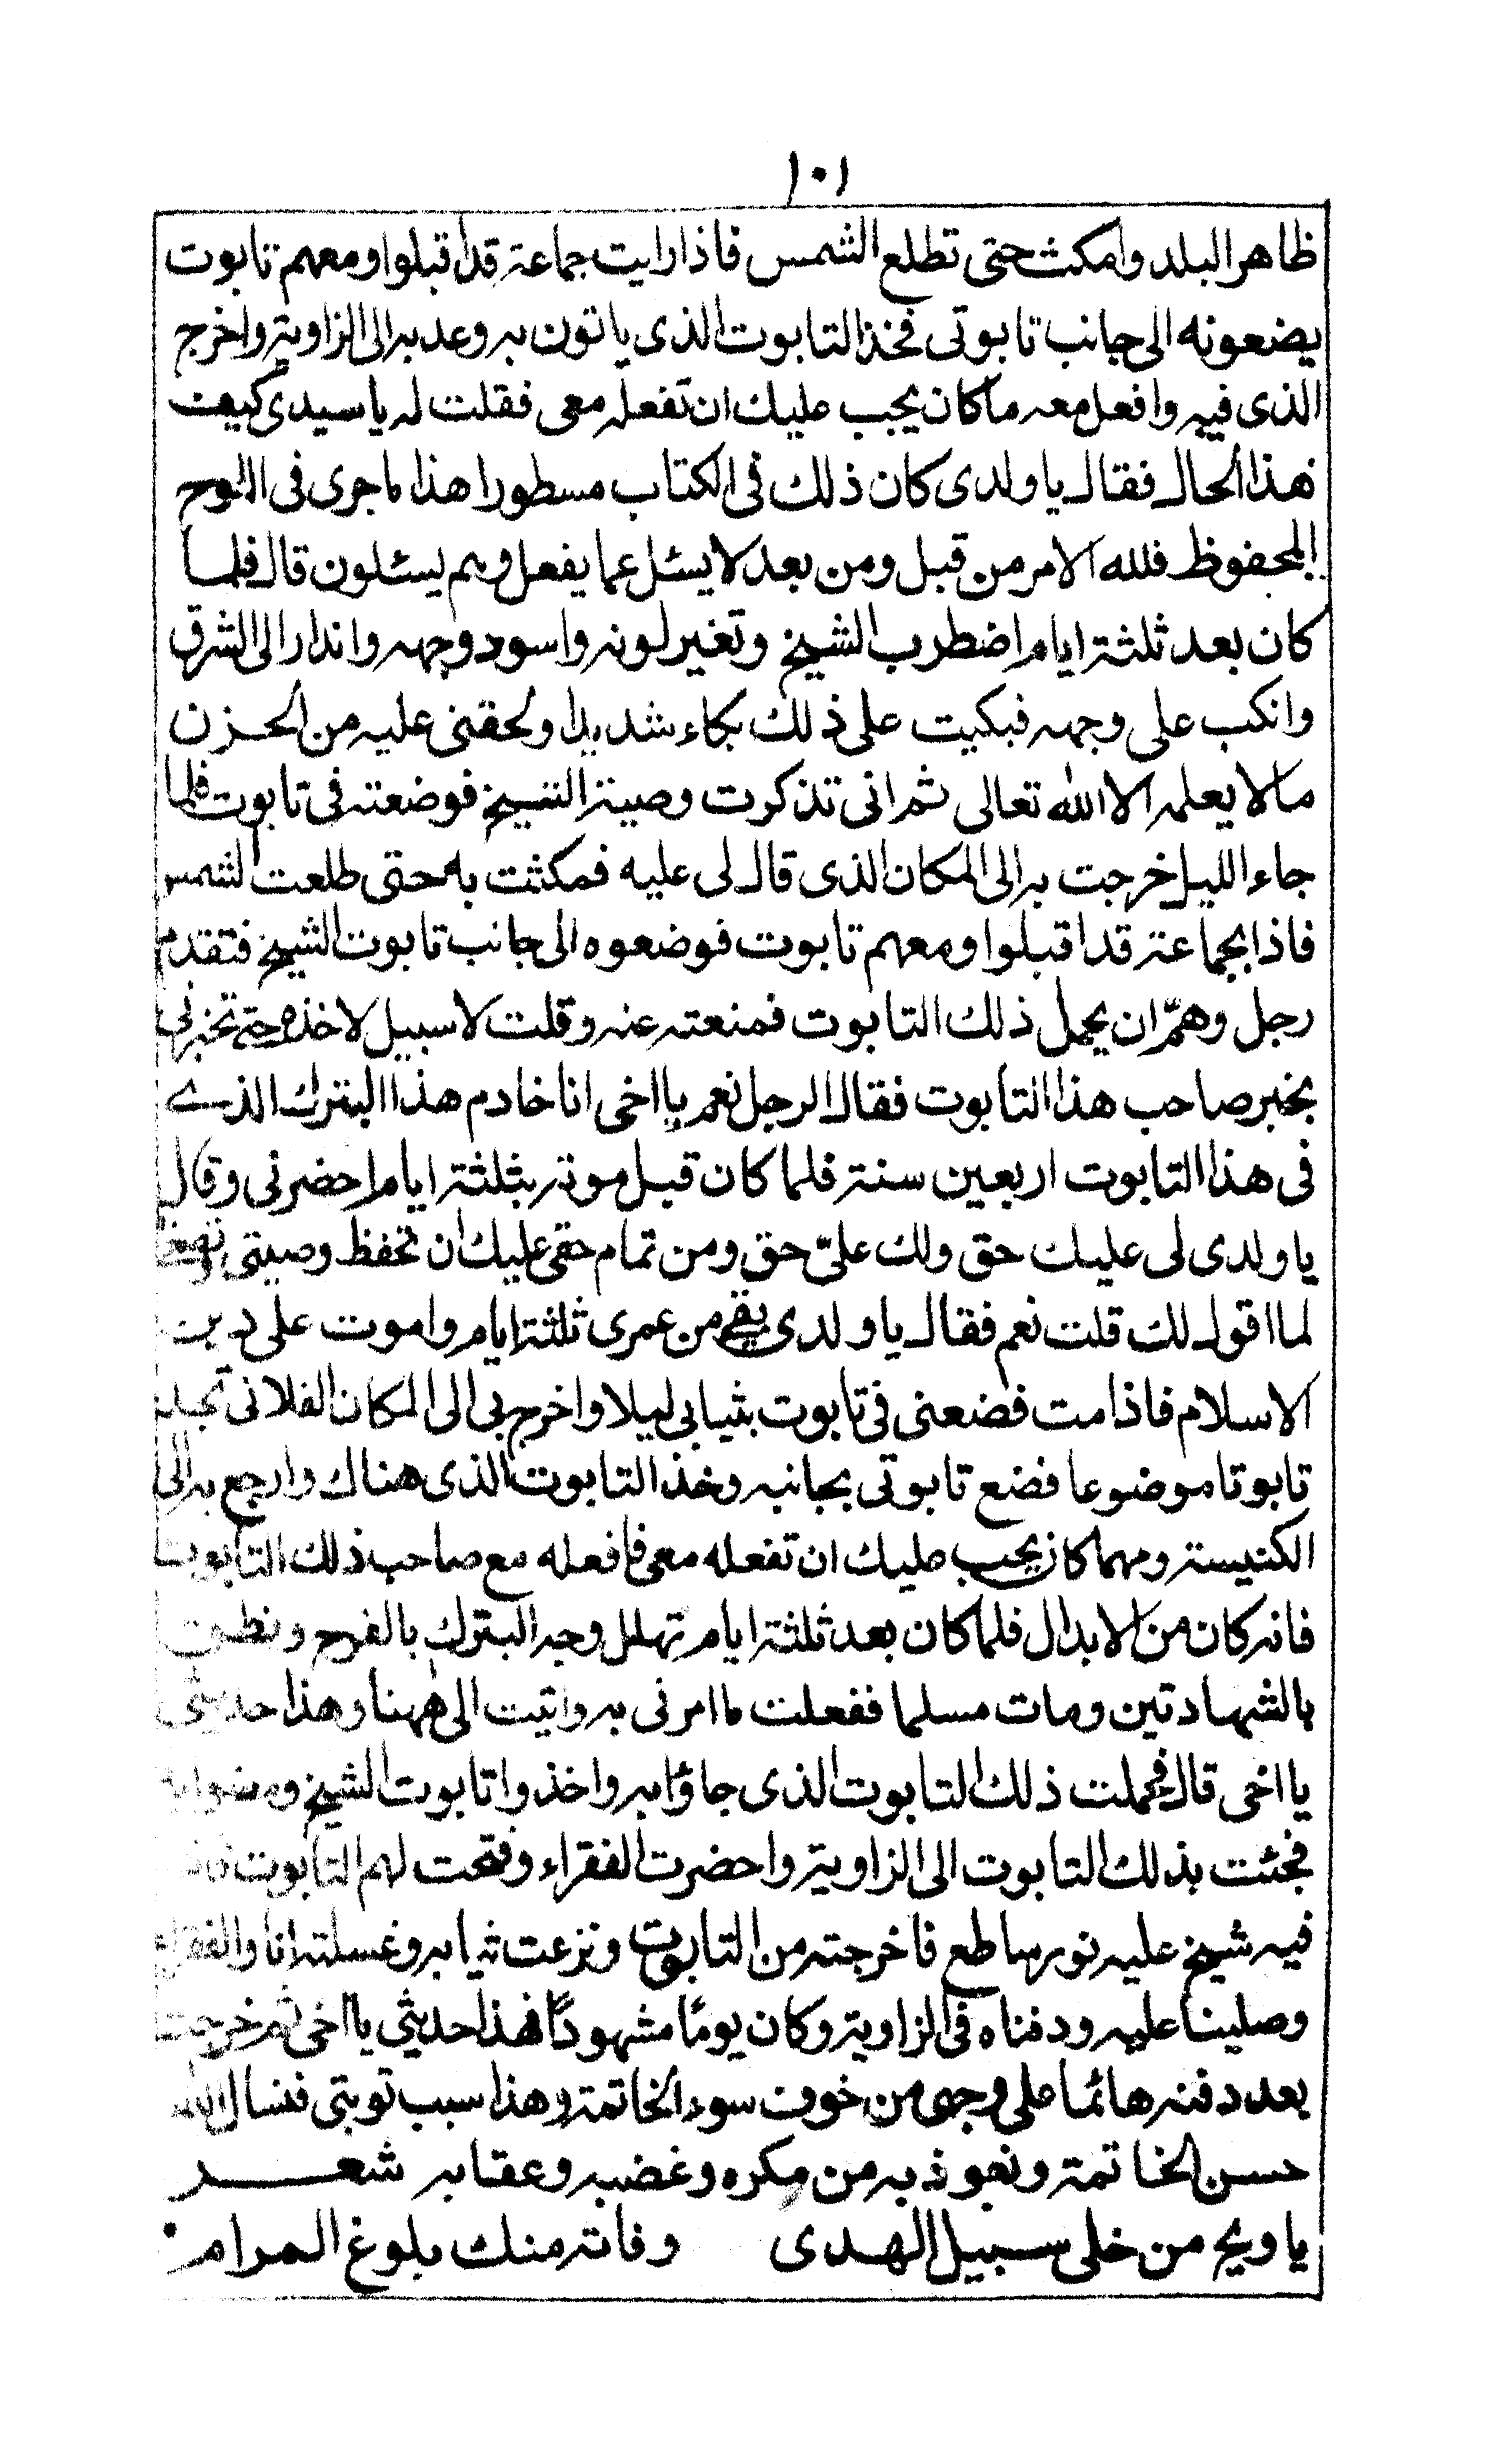 ١٠١
ظاهر البلد وامكث حتى تطلع الشمس فاذا رايت جماعة قد اقبلوا ومعهم تابوت
يضعونه الى جانب تابوتى فخذ التابوت الذى ياتون به وعد به الى الزاوية واخرج
الذى فيه وافعل معه ما كان يجب عليك ان تفعله معى فقلت له يا سيدى كيف
هذا الحال فقال يا ولدى كان ذلك فى الكتاب مسطورا هذا ما جرى فى اللوح
المحفوظ فلله الامر من قبل ومن بعد لا يسئل عما يفعل وهم يسئلون قال فلما
كان بعد ثلثة ايام اضطرب الشيخ وتغير لونه واسود وجهه واندار الى الشرق
وانكب على وجهه فبكيت على ذلك بكاء شديدا ولحقنى عليه من الحزن
مالا يعلمه الا الله تعالى ثم انى تذكرت وصية الشيخ فوضعته فى تابوت فلما
جاء الليل خرجت به الى المكان الذى قال لى عليه فمكثت به حتى طلعت الشمس
فاذا بجماعة قد اقبلوا ومعهم تابوت فوضعوه الى جانب تابوت الشيخ فتقدم
رجل وهمّ ان يحمل ذلك التابوت فمنعته عنه وقلت لا سبيل لاخذه حتى تخبرنى
بخبر صاحب هذا التابوت فقال الرجل نعم يا اخى انا خادم هذا البترك الذى
فى هذا التابوت اربعين سنة فلما كان قبل موته بثلثة ايام احضرنى وقال
يا ولدى لى عليك حق ولك علىّ حق ومن تمام حقى عليك ان تحفظ وصيتى
لما اقول لك قلت نعم فقال يا ولدى بقى من عمرى ثلثة ايام واموت على دين
الاسلام فاذا مت فضعنى فى تابوت بثيابى ليلا واخرج بى الى المكان الفلانى تجد
تابوتا موضوعا فضع تابوتى بجانبه وخذ التابوت الذى هناك وارجع به الى
الكنيسة ومهما كان يجب عليك ان تفعله معى فافعله مع صاحب ذلك التابوت
فانه كان من الابدال فلما كان بعد ثلثة ايام تهلل وجه البترك بالفرح ونطق
بالشهادتين ومات مسلما ففعلت ما امرنى به واتيت الى ههنا وهذا حديثى
يا اخى قال فحملت ذلك التابوت الذى جاؤا به واخذوا تابوت الشيخ ومضوا به
فجئت بذلك التابوت الى الزاوية واحضرت الفقراء وفتحت لهم التابوت فاذا
فيه شيخ عليه نور ساطع فاخرجته من التابوت ونزعت ثيابه وغسلته انا والفقراء
وصلينا عليه ودفناه فى الزاوية وكان يومًا مشهودًا فهذا حديثى يا اخى ثم خرجت
بعد دفنه هائما على وجهى من خوف سوء الخاتمة وهذا سبب توبتى فنسال الله
حسن الخاتمة ونعوذ به من مكره وغضبه وعقابه شعر
يا ويح من خلى سبيل الهدى وفاته منك بلوغ المرام